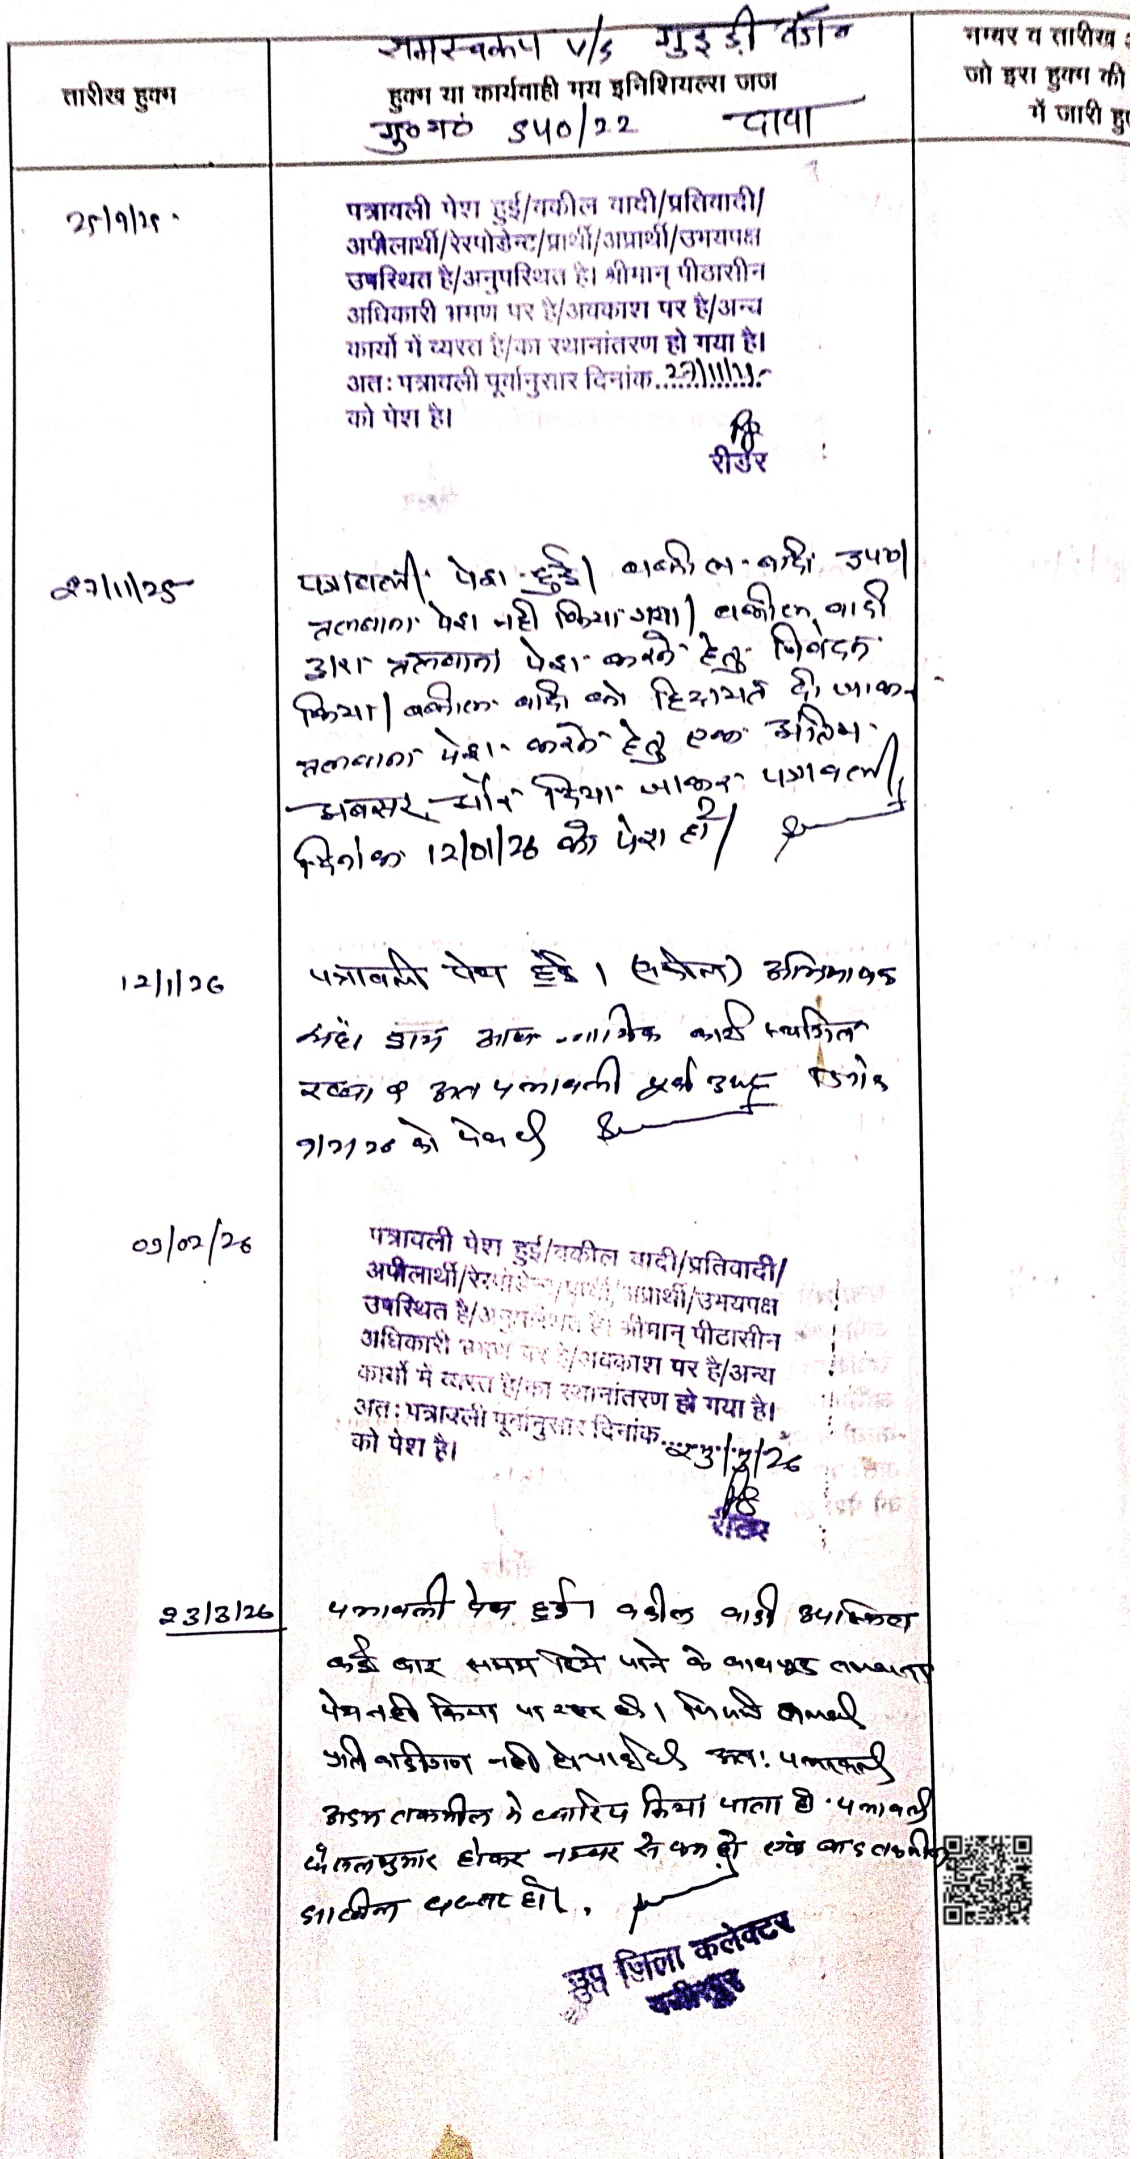 रामस्वरूप v/s गुड्डी वगैरा
तारीख हुक्म
हुक्म या कार्यवाही मय इनिशियल्स जज
मु०नं० 540/22 दावा
नम्बर व तारीख
जो इस हुक्म की
में जारी हुए
25/9/25
पत्रावली पेश हुई/वकील वादी/प्रतिवादी/
अपीलार्थी/रेस्पोडेन्ट/प्रार्थी/अप्रार्थी/उभयपक्ष
उपस्थित है/अनुपस्थित है। श्रीमान् पीठासीन
अधिकारी भ्रमण पर है/अवकाश पर है/अन्य
कार्यो में व्यस्त है/का स्थानांतरण हो गया है।
अतः पत्रावली पूर्वानुसार दिनांक 27/11/25
को पेश है।
रीडर
27/11/25
पत्रावली पेश हुई। वकील वादी उप०।
तलवाना पेश नही किया गया। वकील वादी
द्वारा तलवाना पेश करने हेतु निवेदन
किया। वकील वादी को हिदायत दी जाकर
तलवाना पेश करने हेतु एक अंतिम
अवसर और दिया जाकर पत्रावली
दिनांक 12/01/26 को पेश हो।
12/1/26
पत्रावली पेश हुई। (वकील) अभिभाषक
संघ द्वारा आज न्यायिक कार्य स्थगित
रखा व अतः पत्रावली पूर्व दिनांक
9/2/26 को पेश हो
09/02/26
पत्रावली पेश हुई/वकील वादी/प्रतिवादी/
अपीलार्थी/रेस्पोडेन्ट/प्रार्थी/अप्रार्थी/उभयपक्ष
उपस्थित है/अनुपस्थित है। श्रीमान् पीठासीन
अधिकारी भ्रमण पर है/अवकाश पर है/अन्य
कार्यो में व्यस्त है/का स्थानांतरण हो गया है।
अतः पत्रावली पूर्वानुसार दिनांक 23/3/26
को पेश है।
रीडर
23/3/26
पत्रावली पेश हुई। वकील वादी उपस्थित
कई बार समय दिये जाने के बावजूद तलवाना
पेश नही किया जा रहा है। जिससे तलबी
प्रतिवादीगण नही हो पाई है अतः पत्रावली
अदम तकमील मे खारिज किया जाता है। पत्रावली
फैसलशुमार होकर नम्बर से कम हो एवं बाद तकमील
दाखिल दफ्तर हो।
उप जिला कलेक्टर